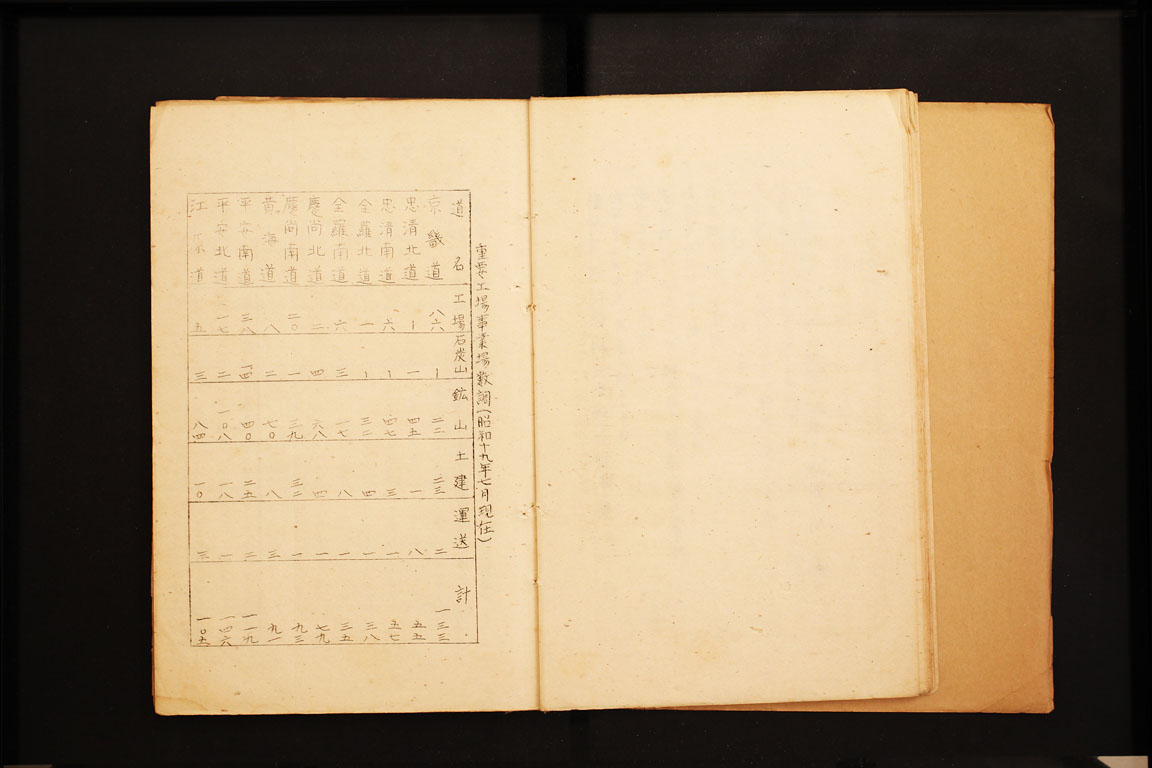 重要工場事業場數調(昭和十九年七月現在)
道名 工場 石炭山 鉱山 土建 運送 計
京畿道 八六 ー 二二 二三 二 一三三
忠清北道 ー 一 四五 一 八 五五
忠清南道 六 ー 四七 三 一 五七
全羅北道 一 ー 三二 四 一 三八
全羅南道 六 三 一七 八 一 三五
慶尚北道 二 四 六八 四 一 七九
慶尚南道 二〇 一 三九 三二 一 九三
黄海道 八 二 七〇 八 三 九一
平安南道 三八 一四 四〇 二五 二 一一九
平安北道 一七 二 一〇八 一八 一 一四六
江原道 五 三 八四 一〇 三 一〇五